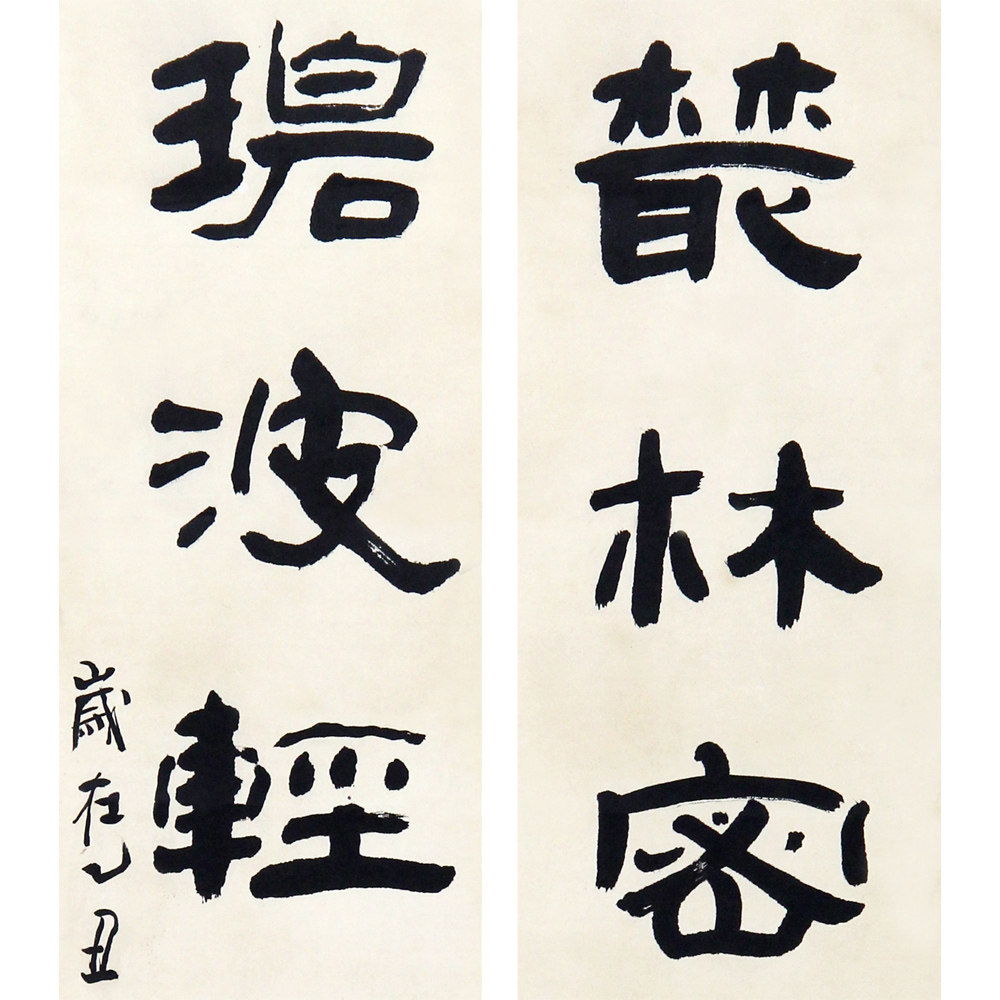 叢林密
碧波輕
歲在乙丑